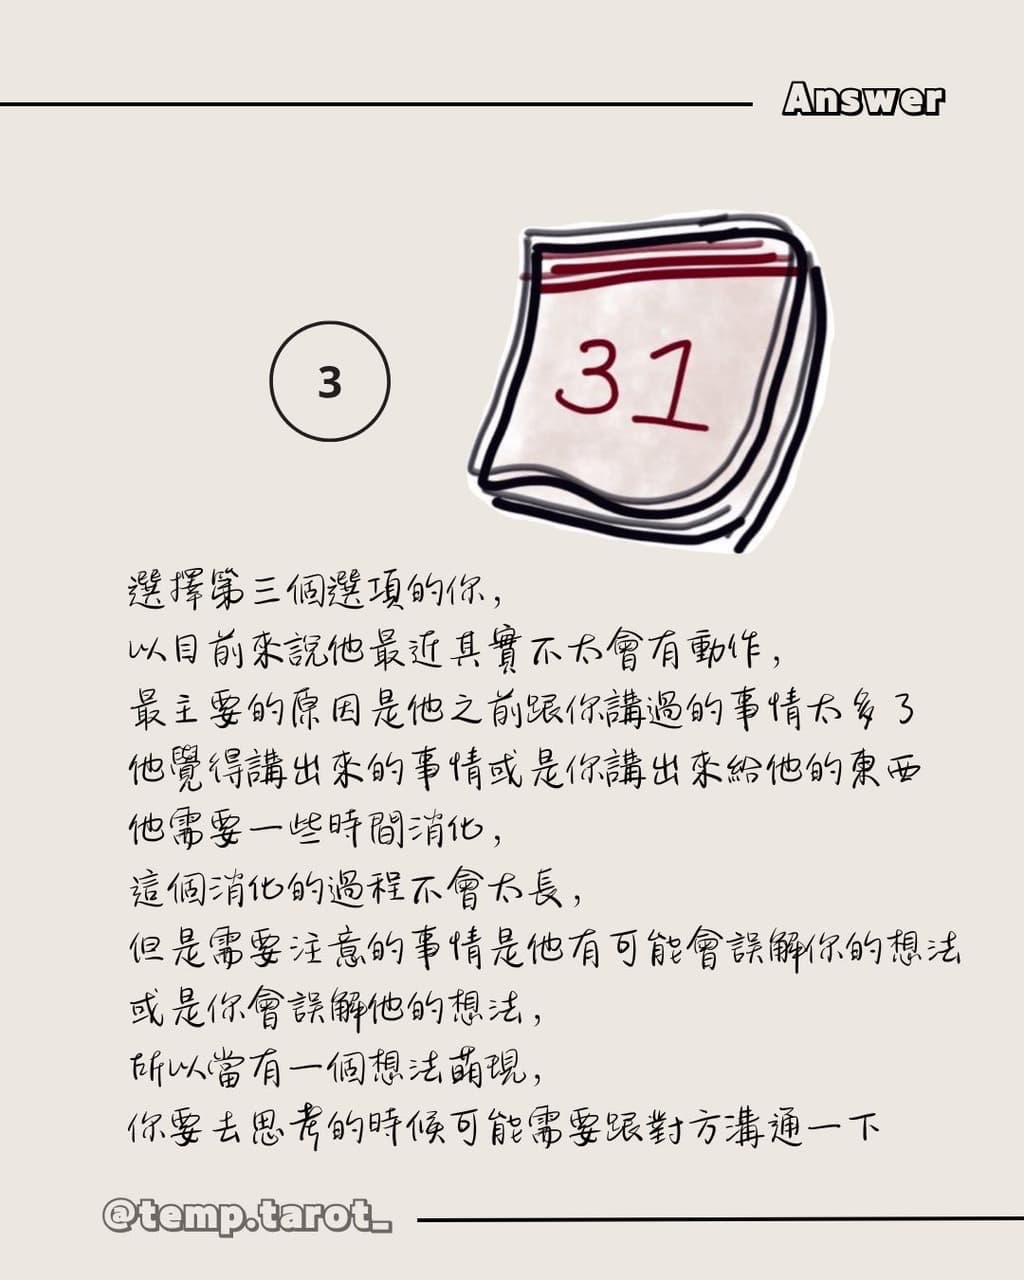 Answer
3
31
選擇第三個選項的你,
以目前來說他最近其實不太會有動作,
最主要的原因是他之前跟你講過的事情太多了
他覺得講出來的事情或是你講出來給他的東西
他需要一些時間消化,
這個消化的過程不會太長,
但是需要注意的事情是他有可能會誤解你的想法
或是你會誤解他的想法,
所以當有一個想法萌現,
你要去思考的時候可能需要跟對方溝通一下
@temp.tarot_